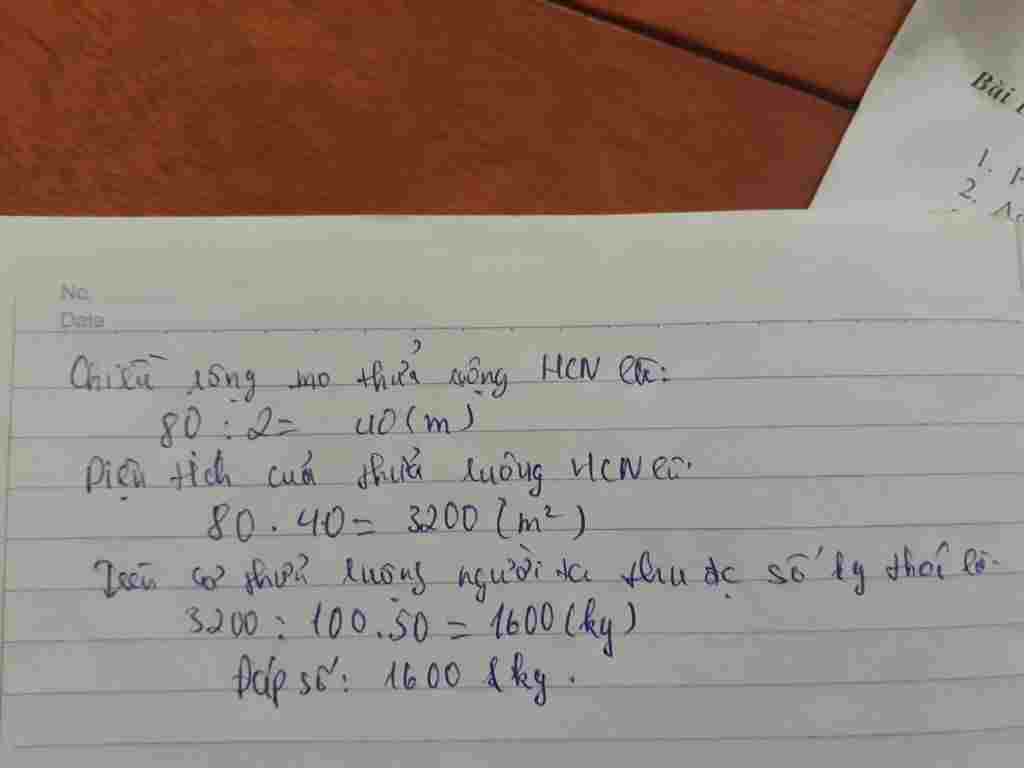 Bài
1.
2.
No.
Date
Chiều rộng thửa ruộng HCN là:
80 : 2 = 40 (m)
Diện tích của thửa ruộng HCN là:
80 . 40 = 3200 (m²)
Trên cả thửa ruộng người ta thu đc số kg thóc là:
3200 : 100 . 50 = 1600 (kg)
Đáp số: 1600 kg.